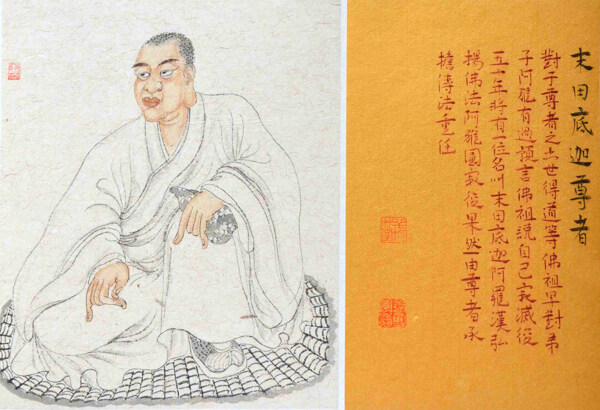 末田底迦尊者
對于尊者之出世得道等佛祖早對弟
子阿難有過預言佛祖說自己寂滅後
五十年將有一位名叫末田底迦阿羅漢弘
揚佛法阿難圓寂後果然由尊者承
擔傳法重任